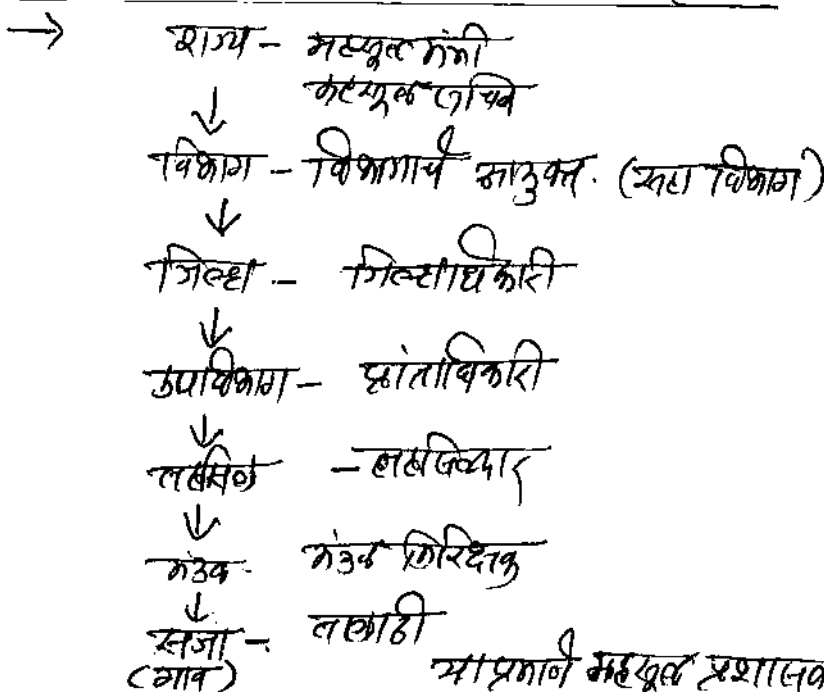 → राज्य - महसूल मंत्री
महसूल सचिव
↓
विभाग - विभागाचे आयुक्त. (सहा विभाग)
↓
जिल्हा - जिल्हाधिकारी
↓
उपविभाग - प्रांताधिकारी
↓
तहसिल - तहसिलदार
↓
मंडळ - मंडळ निरिक्षक
↓
सजा - तलाठी
(गाव) याप्रमाणे महसूल प्रशासन